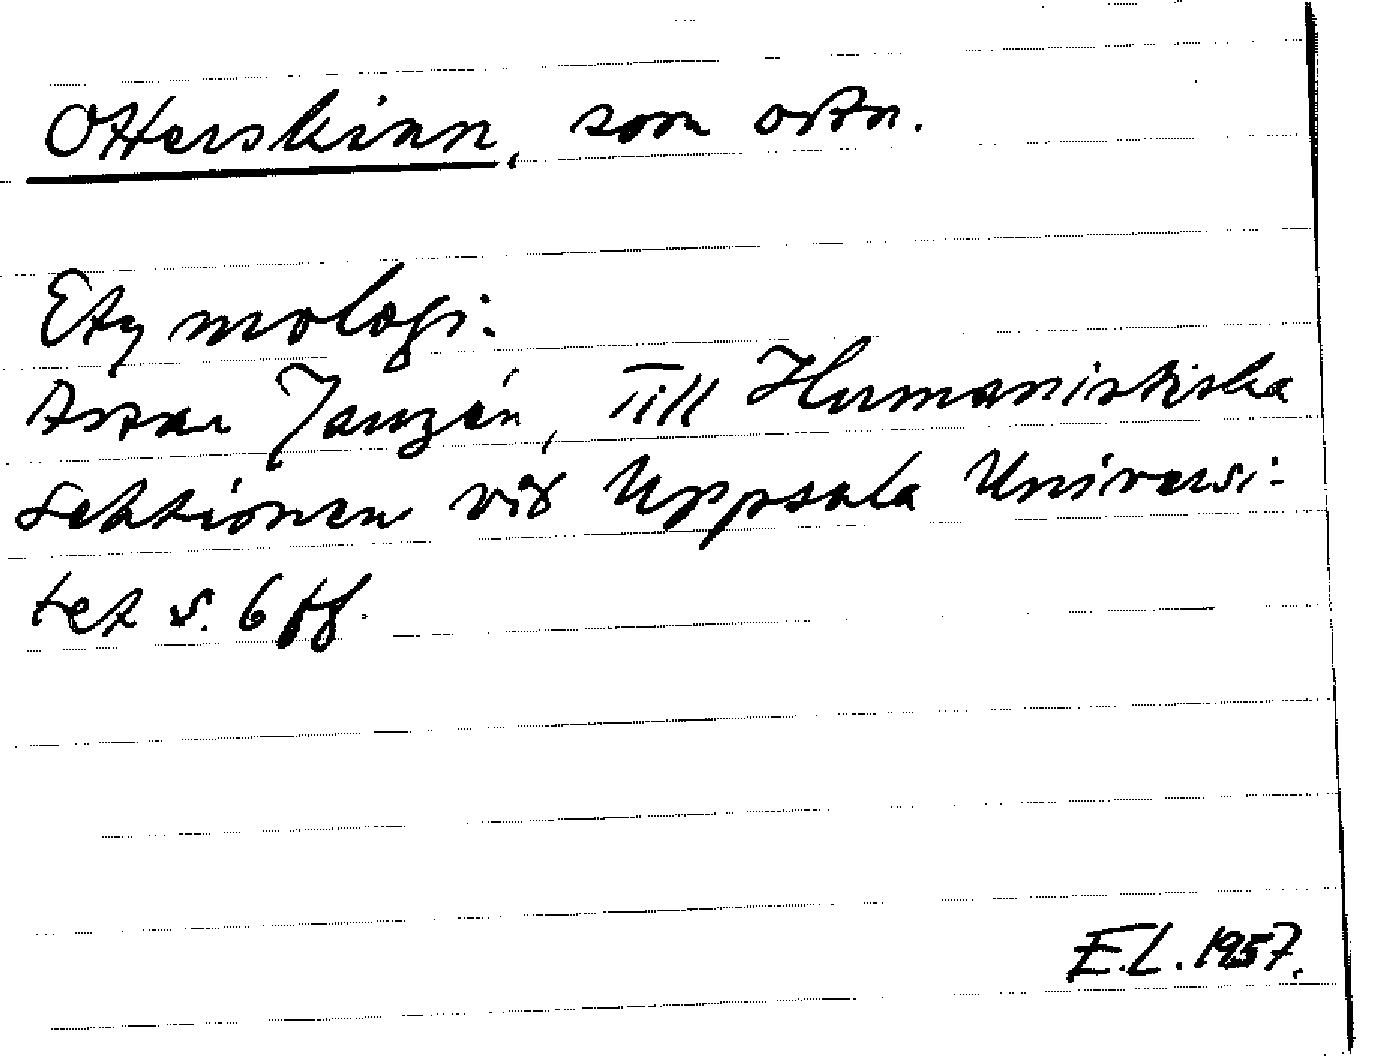 Otterskinn, som ortn.
Etymologi:
Assar Janzén, Till Humanistiska
Sektionen vid Uppsala Universi-
tet s. 6 ff.
E.L. 1957.